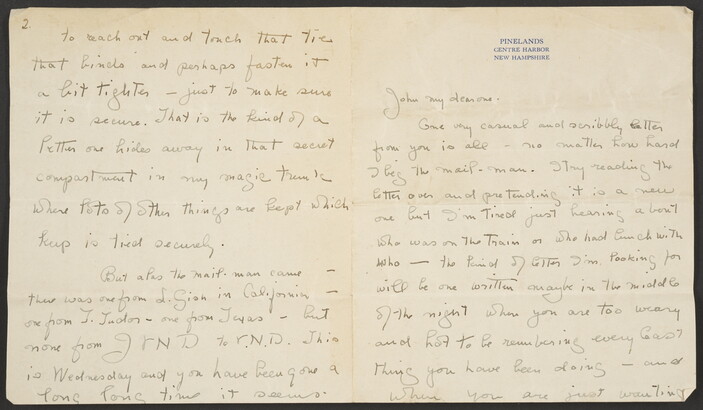 PINELANDS
CENTRE HARBOR
NEW HAMPSHIRE
John my dearone.
One very casual and scribbly letter
from you is all – no matter how hard
I beg the mail-man. I try reading the
letter over and pretending it is a new
one but I'm tired just hearing about
who was on the train or who had lunch with
who – the kind of letter I'm looking for
will be one written maybe in the middle
of the night when you are too weary
and hot to be remembering every last
thing you have been doing – and
when you are just wanting
2.
to reach out and touch that tie
that binds and perhaps fasten it
a bit tighter – just to make sure
it is secure. That is the kind of a
letter one hides away in that secret
compartment in my magic trunk
where lots of other things are kept which
keep is tied securely.
But alas the mail-man came –
there was one from L. Gish in California –
one from T. Tudor – one from Texas – but
none from J V N D to V.N.D. This
is Wednesday and you have been gone a
long long time it seems.